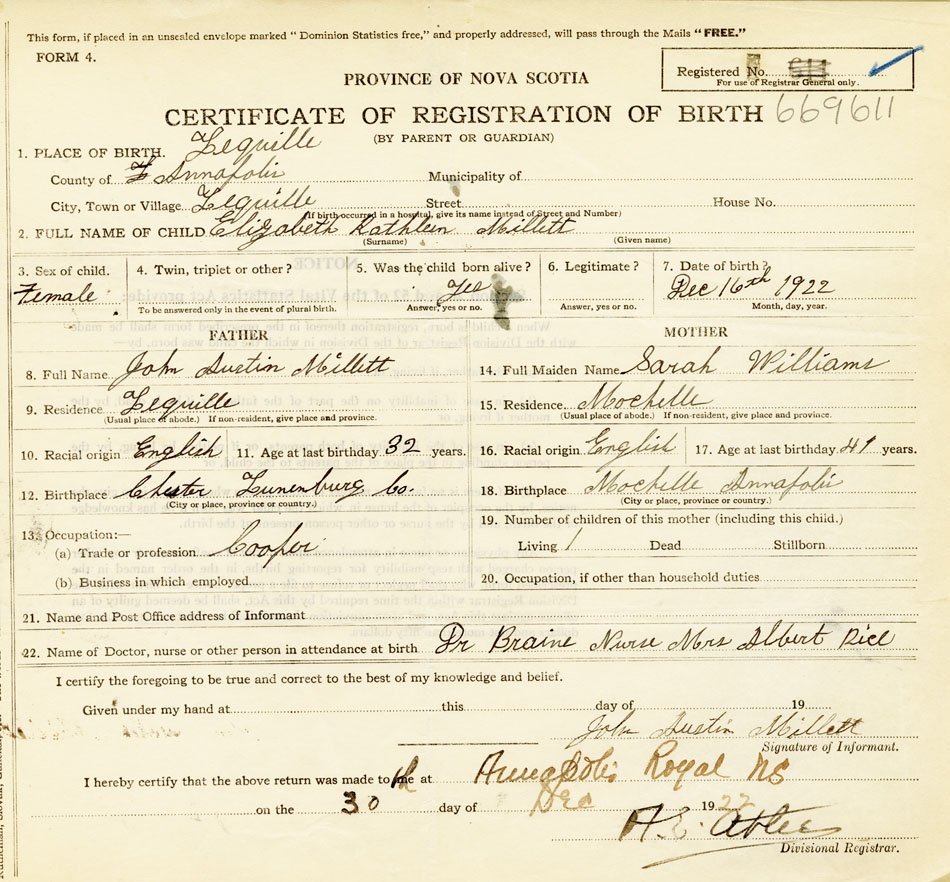 This form, if placed in an unsealed envelope marked "Dominion Statistics free," and properly addressed, will pass through the Mails "FREE."
FORM 4.
Registered No.
For use of Registrar General only.
PROVINCE OF NOVA SCOTIA
CERTIFICATE OF REGISTRATION OF BIRTH 669611
(BY PARENT OR GUARDIAN)
1. PLACE OF BIRTH. Lequille
County of Annapolis Municipality of
City, Town or Village Lequille Street House No.
(If birth occurred in a hospital, give its name instead of Street and Number)
2. FULL NAME OF CHILD Elizabeth Kathleen Millett
(Surname) (Given name)
3. Sex of child. 4. Twin, triplet or other? 5. Was the child born alive? 6. Legitimate? 7. Date of birth?
Female Yes Dec 16th 1922
To be answered only in the event of plural birth. Answer, yes or no. Answer, yes or no. Month, day, year.
FATHER MOTHER
8. Full Name John Austin Millett 14. Full Maiden Name Sarah Williams
9. Residence Lequille 15. Residence Mochelle
(Usual place of abode.) If non-resident, give place and province. (Usual place of abode.) If non-resident, give place and province.
10. Racial origin English 11. Age at last birthday 32 years. 16. Racial origin English 17. Age at last birthday 41 years.
12. Birthplace Chester Lunenburg Co. 18. Birthplace Mochelle Annapolis
(City or place, province or country.) (City or place, province or country.)
13. Occupation:— 19. Number of children of this mother (including this child.)
(a) Trade or profession Cooper Living 1 Dead Stillborn
(b) Business in which employed 20. Occupation, if other than household duties
21. Name and Post Office address of Informant
22. Name of Doctor, nurse or other person in attendance at birth Dr Braine Nurse Mrs Albert Rice
I certify the foregoing to be true and correct to the best of my knowledge and belief.
Given under my hand at this day of 19
John Austin Millett
Signature of Informant.
I hereby certify that the above return was made to me at Annapolis Royal NS
on the 30 day of Dec 1922
Divisional Registrar.